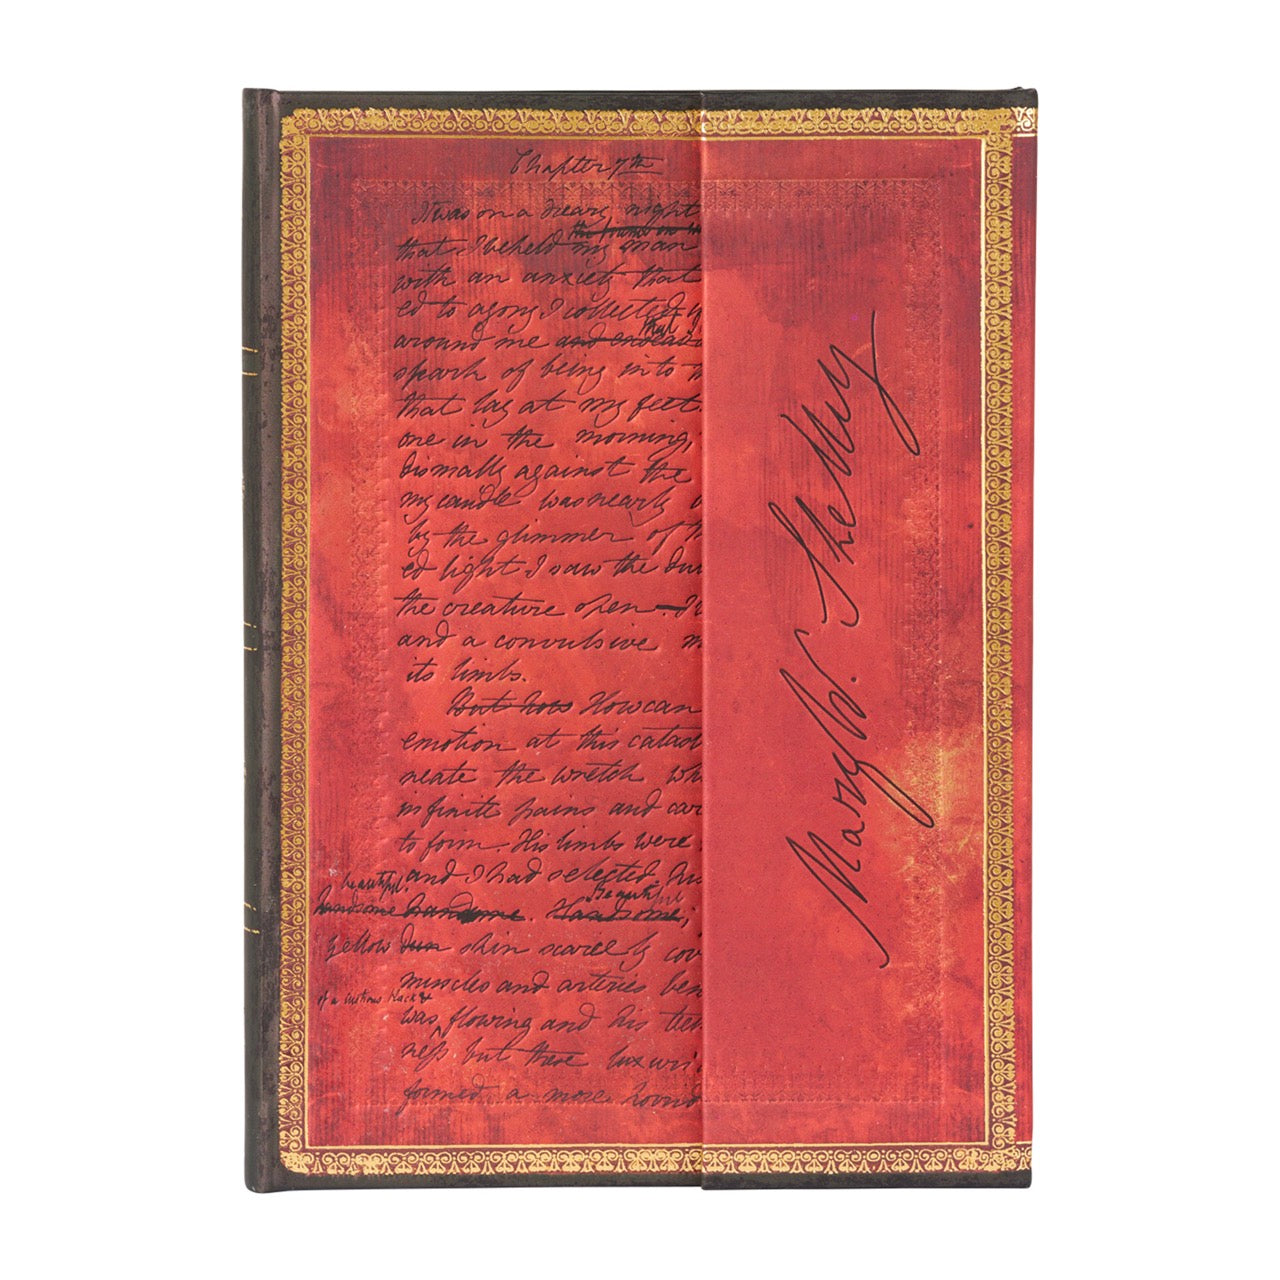 Chapter 7th
It was on a dreary night
that I beheld my man
with an anxiety that
ed to agony I collected
that
around me and endeav
spark of being into
that lay at my feet.
one in the morning,
dismally against the
my candle was nearly
by the glimmer of
ed light I saw the dul
the creature open
and a convulsive m
its limbs.
But how How can
emotion at this catast
neate the wretch wh
infinite pains and car
to form. His limbs were
and I had selected his
beautiful. Beautiful
handsome handsome. Handsome;
yellow dun skin scarcely cov
muscles and arteries ben
of a lustrous black &
was flowing and his tee
ness but these luxuri
formed a more horrid
Mary W. Shelley